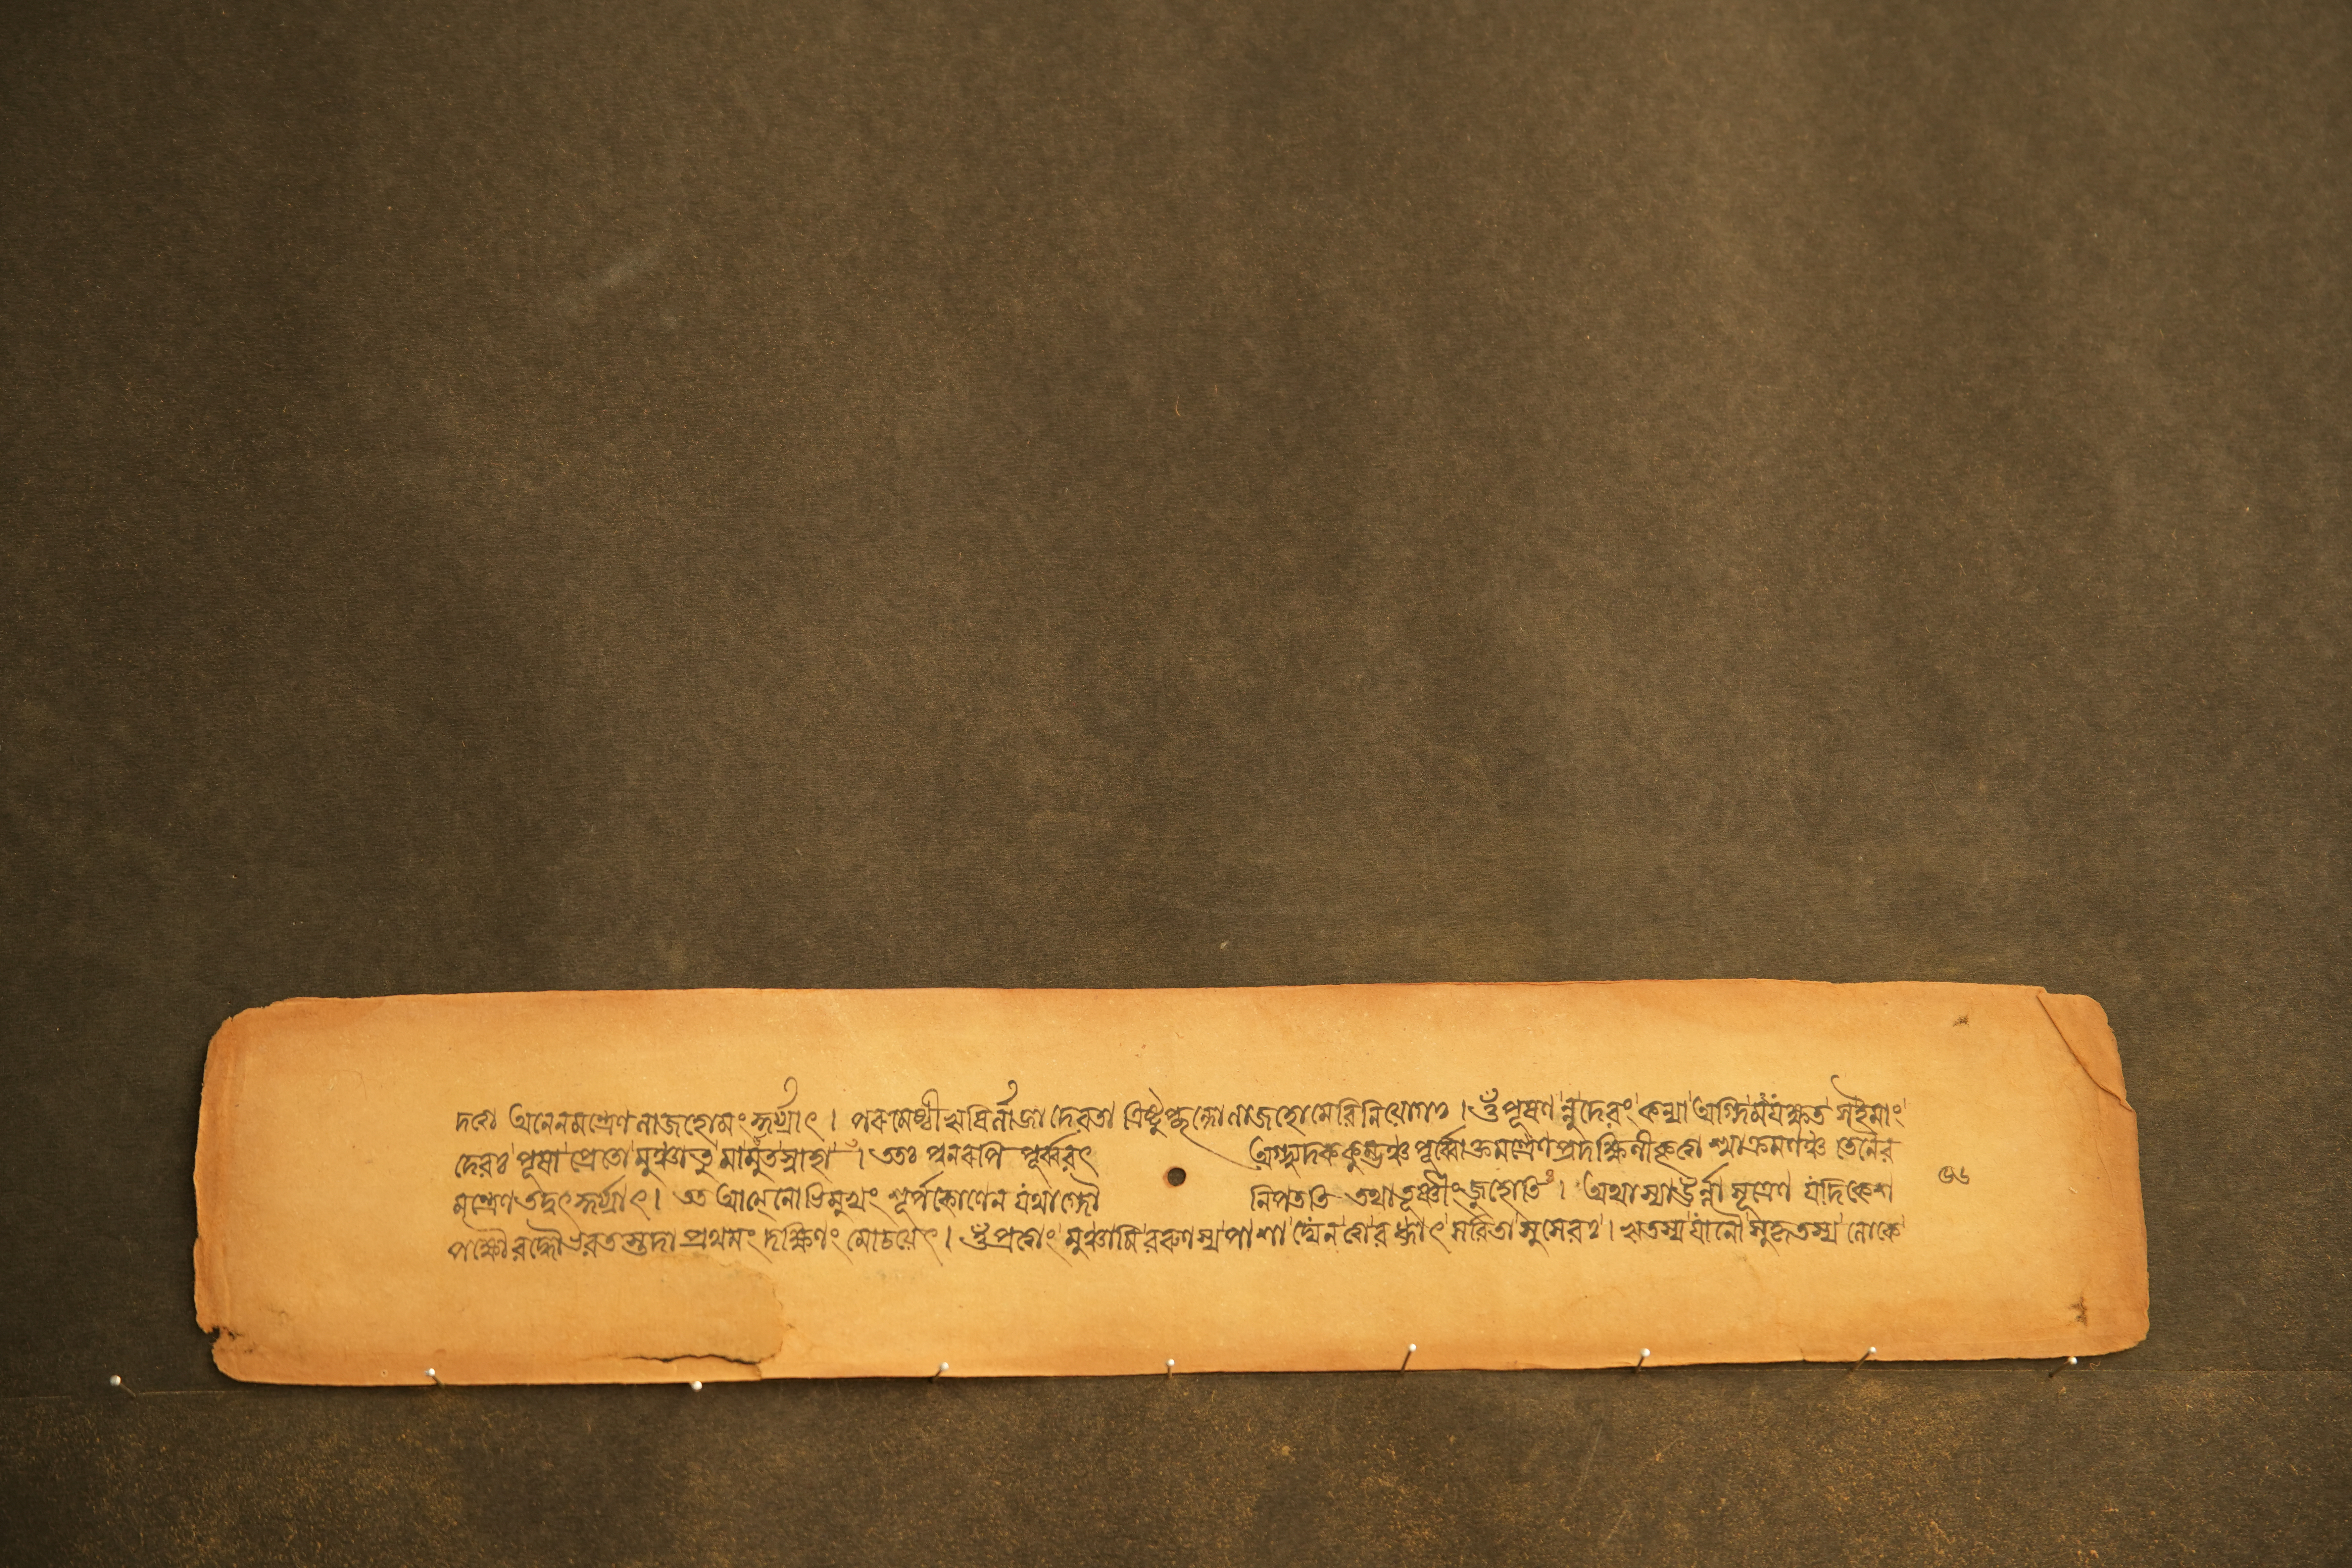 দশে অনেনমন্ত্রেণলাজহোমংকুর্য্যাৎ । পরমেষ্ঠীঋষির্নানা দেবতা ত্রিষ্টুপ্ছন্দোলাজহোমেবিনিয়োগঃ । ওঁপূষণংনুদেবং কন্যা অগ্নিমযক্ষত সইমাং
দেবঃ পূষা প্রেতো মুঞ্চাতু মামুতস্বাহা । ততঃ পুনরপি পূর্ব্ববৎ অশ্মুদককুম্ভঞ্চ পূর্ব্বোক্তমন্ত্রেণপ্রদক্ষিণীকৃত্য অশ্মাক্রমণঞ্চ তেনৈব
মন্ত্রেণতদ্বৎকুর্য্যাৎ । তত আত্মনোভিমুখং শূর্পকোণেন যথাগ্নৌ নিপততি তথাতূষ্ণীংজুহোতি । অথাস্যাঊর্ন্নাসূত্রেণ যদিকেশ
পক্ষৌবদ্ধৌভবতস্তদা প্রথমং দক্ষিণং মোচয়েৎ । ওঁপ্রত্বাং মুঞ্চামিবরুণস্যপাশাদ্যেনত্বাবধ্নাৎ সবিতা সুসেবঃ । ঋতস্যযোনৌ সুকৃতস্য লোকে
৩৬